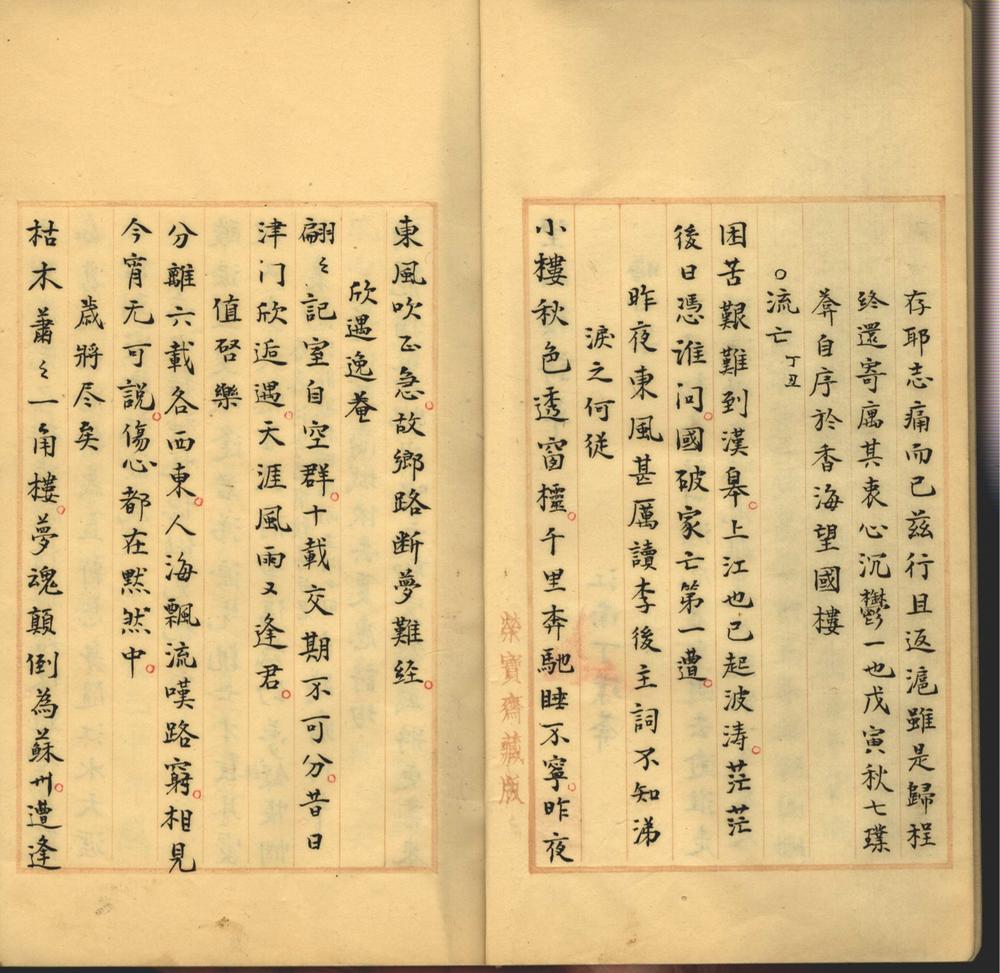 存耶志痛而已茲行且返滬雖是歸程
終還寄廡其衷心沉鬱一也戊寅秋七璞
莽自序於香海望國樓
○流亡 丁丑
困苦艱難到漢皋上江也已起波涛茫茫
後日憑誰问國破家亡第一遭
昨夜東風甚厲讀李後主詞不知涕
淚之何従
小樓秋色透窗櫺千里奔馳睡不寧昨夜
榮寶齋藏版
東風吹正急故鄉路断夢難経
欣遇逸菴
翩〻記室自空群十載交期不可分昔日
津门欣逅遇天涯風雨又逢君
值啓樂
分離六載各西東人海飄流嘆路窮相見
今宵无可説傷心都在默然中
歲將尽矣
枯木蕭〻一角樓夢魂顛倒為蘇州遭逢